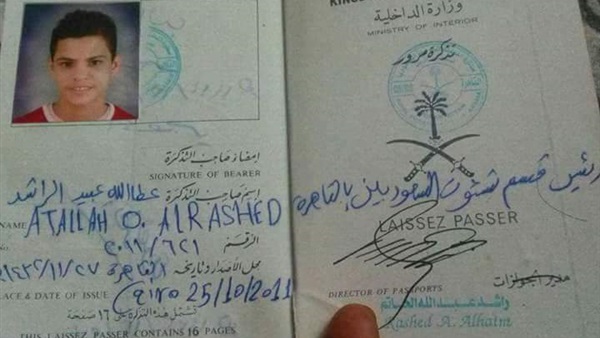 إمضاء صاحب التذكرة
SIGNATURE OF BEARER
اسم صاحب التذكرة عطالله عبيد الراشد
NAME ATALLAH O. ALRASHED
الرقم ٢٠١١/٦٢١
محل الاصدار وتاريخه القاهرة ١٤٣٢/١١/٢٧
PLACE & DATE OF ISSUE Cairo 25/10/2011
تشتمل هذه التذكرة على ١٦ صفحة
THIS LAISSEZ PASSER CONTAINS 16 PAGES
وزارة الداخلية
MINISTRY OF INTERIOR
تذكرة مرور
رئيس قسم شئون السعوديين بالقاهرة
LAISSEZ PASSER
مدير الجوازات
DIRECTOR OF PASSPORTS
راشد عبدالله الحاتم
Rashed A. Alhatm